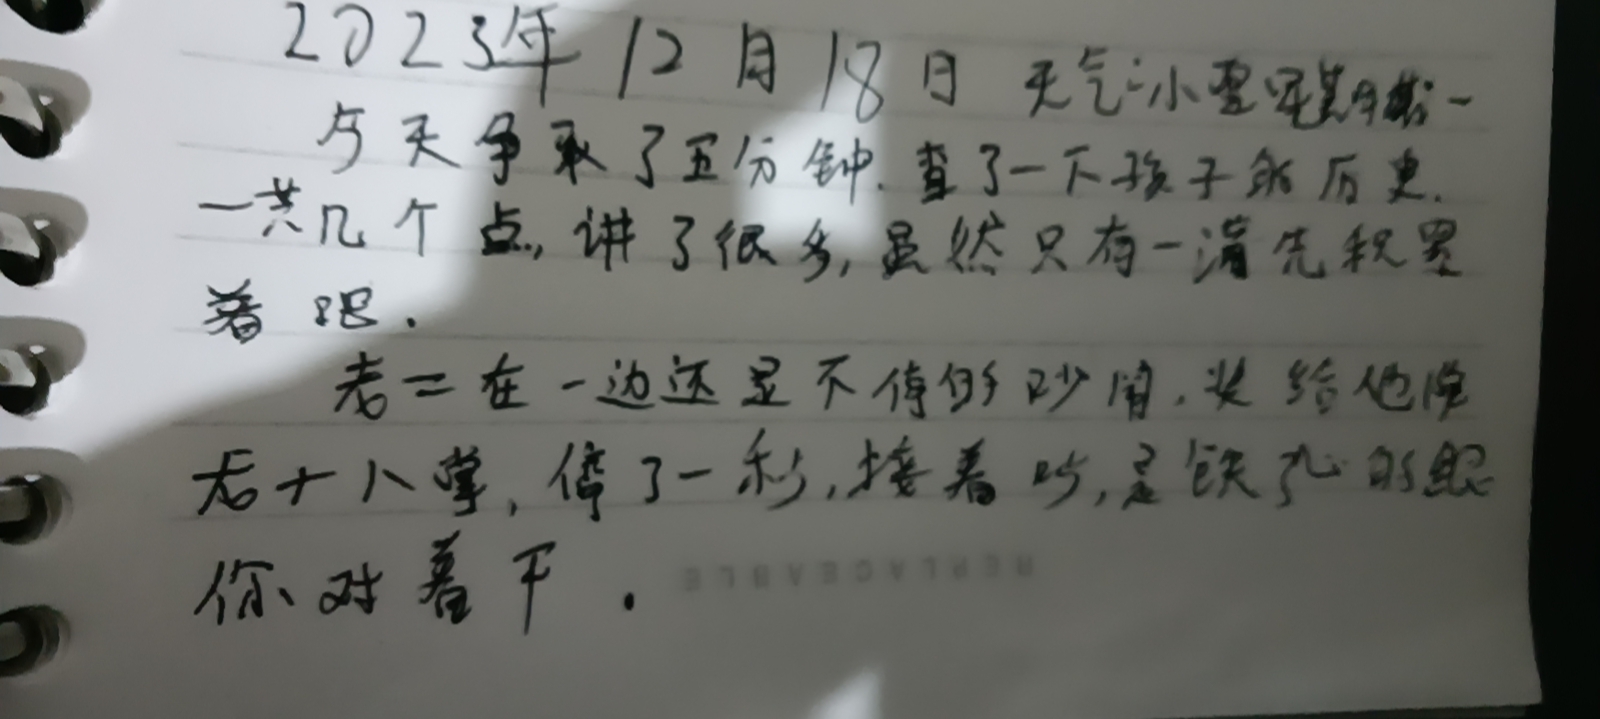 2023年 12月18日 天气:小雪 星期一
今天争取了五分钟.查了一下孩子的历史.
一共几个点,讲了很多,虽然只有一滴先积累
着吧.
老二在一边还是不停的吵闹.我给他降
龙十八掌,停了一秒,接着吵,是铁了心的跟
你对着干.
REPLACEABLE